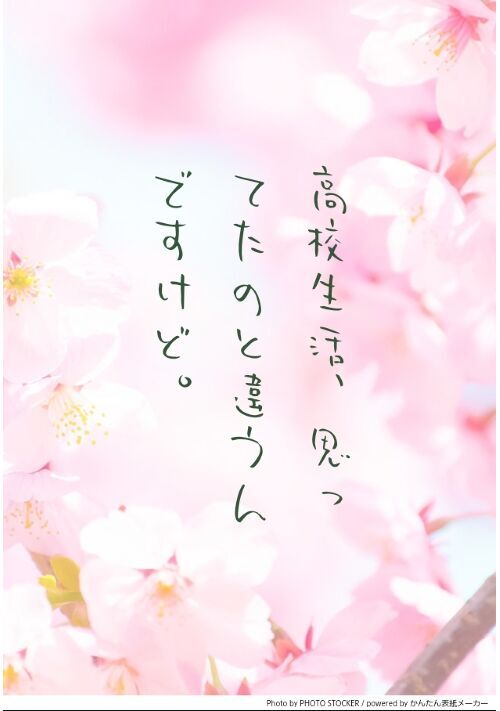 高校生活、思っ
てたのと違うん
ですけど。
Photo by PHOTO STOCKER / powered by かんたん表紙メーカー